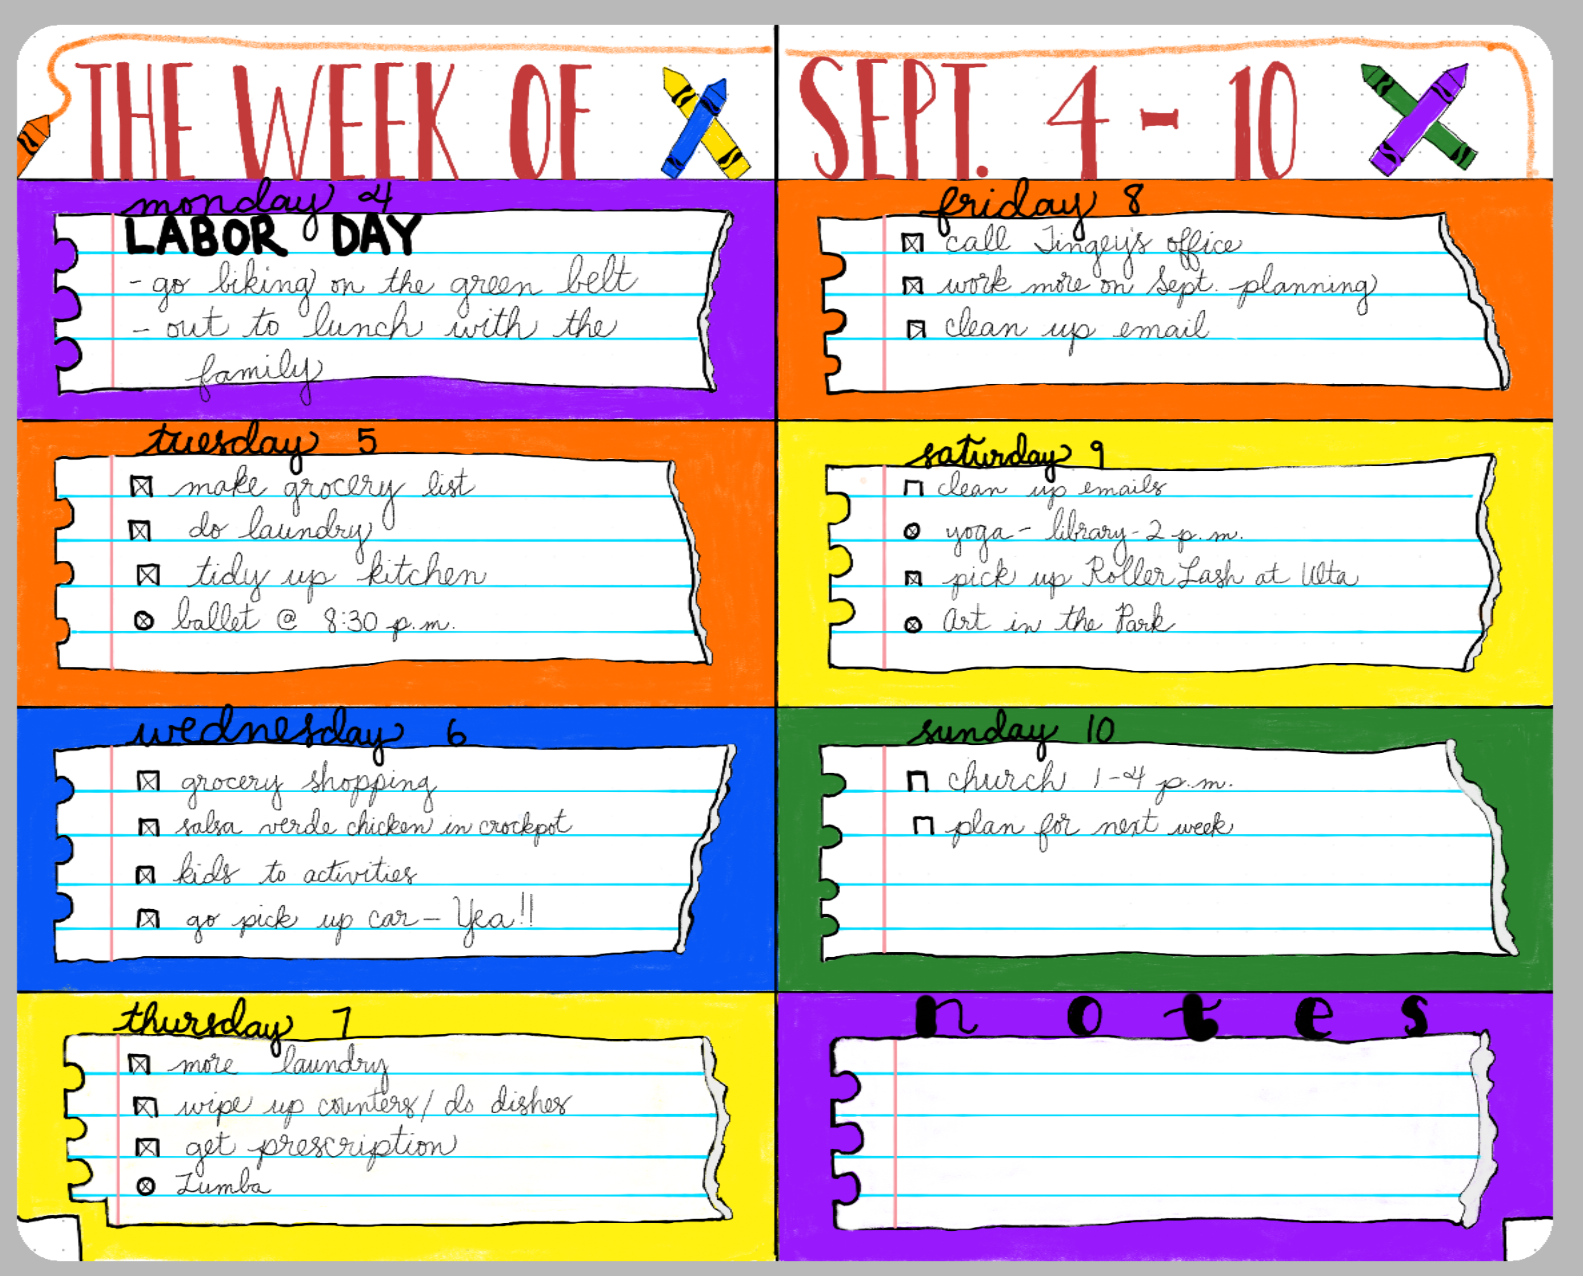 THE WEEK OF
SEPT. 4-10
monday 4
LABOR DAY
- go biking on the green belt
- out to lunch with the
family
tuesday 5
make grocery list
do laundry
tidy up kitchen
ballet @ 8:30 p.m.
wednesday 6
grocery shopping
salsa verde chicken in crockpot
kids to activities
go pick up car - Yea!!
thursday 7
more laundry
wipe up counters/do dishes
get prescription
Zumba
friday 8
call Tingey's office
work more on Sept. planning
clean up email
saturday 9
clean up emails
yoga - library - 2 p.m.
pick up Roller Lash at Ulta
Art in the Park
sunday 10
church 1-4 p.m.
plan for next week
notes